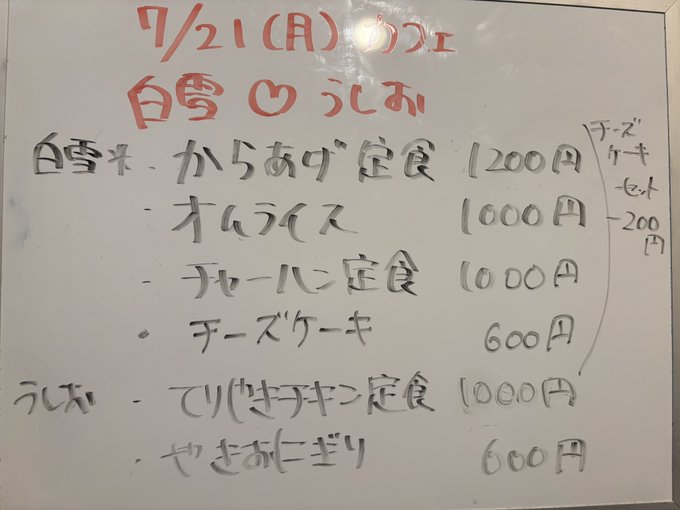 7/21(月)カフェ
白雪♡うしお
白雪米 - からあげ定食 1200円
- オムライス 1000円
- チャーハン定食 1000円
・ チーズケーキ 600円
うしお - てりやきチキン定食 1000円
・ やきおにぎり 600円
チーズ
ケーキ
セット
-200
円